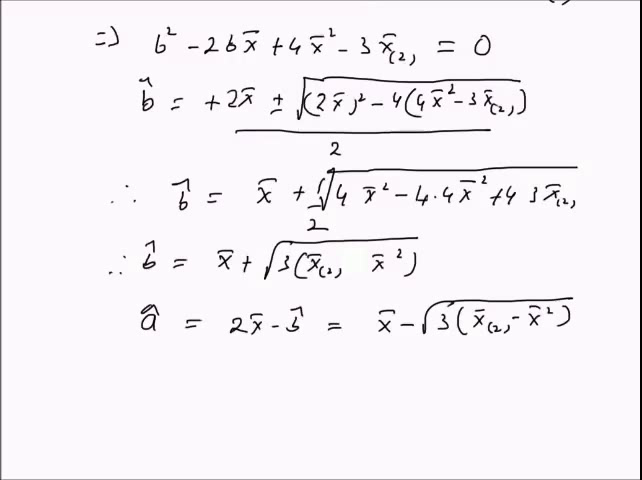 => b² - 2b x̄ + 4x̄² - 3x̄(2) = 0
b̂ = +2x̄ ± √((2x̄)² - 4(4x̄² - 3x̄(2))) / 2
∴ b̂ = x̄ + 1/2 √(4 x̄² - 4·4x̄² + 4 3x̄(2))
∴ b̂ = x̄ + √(3(x̄(2) x̄²))
â = 2x̄ - b̂ = x̄ - √(3(x̄(2) - x̄²))